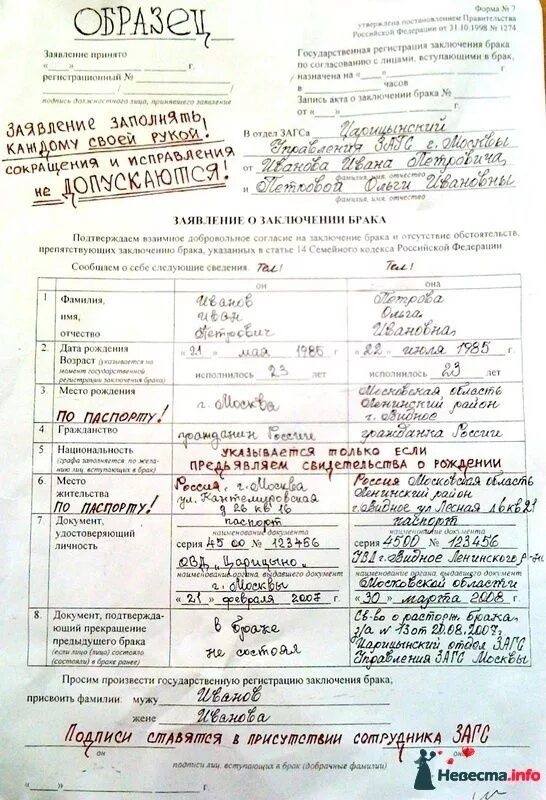 ОБРАЗЕЦ
Форма № 7
утверждена постановлением Правительства
Российской Федерации от 31.10.1998 № 1274
Заявление принято
«___» ____________ г.
регистрационный № ____
подпись должностного лица, принявшего заявление
Государственная регистрация заключения брака
по согласованию с лицами, вступающими в брак,
назначена на «___» ____________ г.
в ____ часов
Запись акта о заключении брака № ____
от «___» ____________ г.
ЗАЯВЛЕНИЕ ЗАПОЛНЯТЬ
КАЖДОМУ СВОЕЙ РУКОЙ!
СОКРАЩЕНИЯ И ИСПРАВЛЕНИЯ
НЕ ДОПУСКАЮТСЯ!
В отдел ЗАГСа Царицынский
Управления ЗАГС г. Москвы
от Иванова Ивана Петровича
фамилия, имя, отчество
и Петровой Ольги Ивановны
фамилия, имя, отчество
ЗАЯВЛЕНИЕ О ЗАКЛЮЧЕНИИ БРАКА
Подтверждаем взаимное добровольное согласие на заключение брака и отсутствие обстоятельств,
препятствующих заключению брака, указанных в статье 14 Семейного кодекса Российской Федерации
Сообщаем о себе следующие сведения. Тел! Тел!
он она
1 Фамилия, Иванов Петрова
имя, Иван Ольга
отчество Петрович Ивановна
2. Дата рождения «21» мая 1985 г. «22» июля 1985 г.
Возраст (указывается на
момент государственной
регистрации заключения брака)
исполнилось 23 лет исполнилось 23 лет
3. Место рождения г. Москва
ПО ПАСПОРТУ!
Московская область
Ленинский район
г. Видное
4. Гражданство гражданин России гражданка России
5. Национальность
(графа заполняется по жела-
нию лиц, вступающих в брак)
указывается только если
предъявляем свидетельства о рождении
6. Место
жительства
ПО ПАСПОРТУ!
Россия, г. Москва
ул. Кантемировская
д 26 кв 16
Россия Московская область
Ленинский район
г. Видное ул Лесная д 6 кв 21
7. Документ,
удостоверяющий
личность
паспорт
наименование документа
серия 45 00 № 123456
ОВД "Царицыно"
наименование органа, выдавшего документ
г. Москвы
«21» февраля 2007 г.
паспорт
наименование документа
серия 4500 № 123456
УВД г. Видное Ленинского р-на
наименование органа, выдавшего документ
Московской области
«30» марта 2008 г.
8. Документ, подтвержда-
ющий прекращение
предыдущего брака
(если лицо (лица) состояло
(состояли) в браке ранее)
в браке
не состоял
Св-во о расторж. брака,
з/а № 13 от 20.08.2007г.
Царицынский отдел ЗАГС
Управления ЗАГС Москвы
Просим произвести государственную регистрацию заключения брака,
присвоить фамилии: мужу Иванов
жене Иванова
Подписи ставятся в присутствии сотрудника ЗАГС
он она
подписи лиц, вступающих в брак (добрачные фамилии)
«___» ____________ г.
Невеста.info